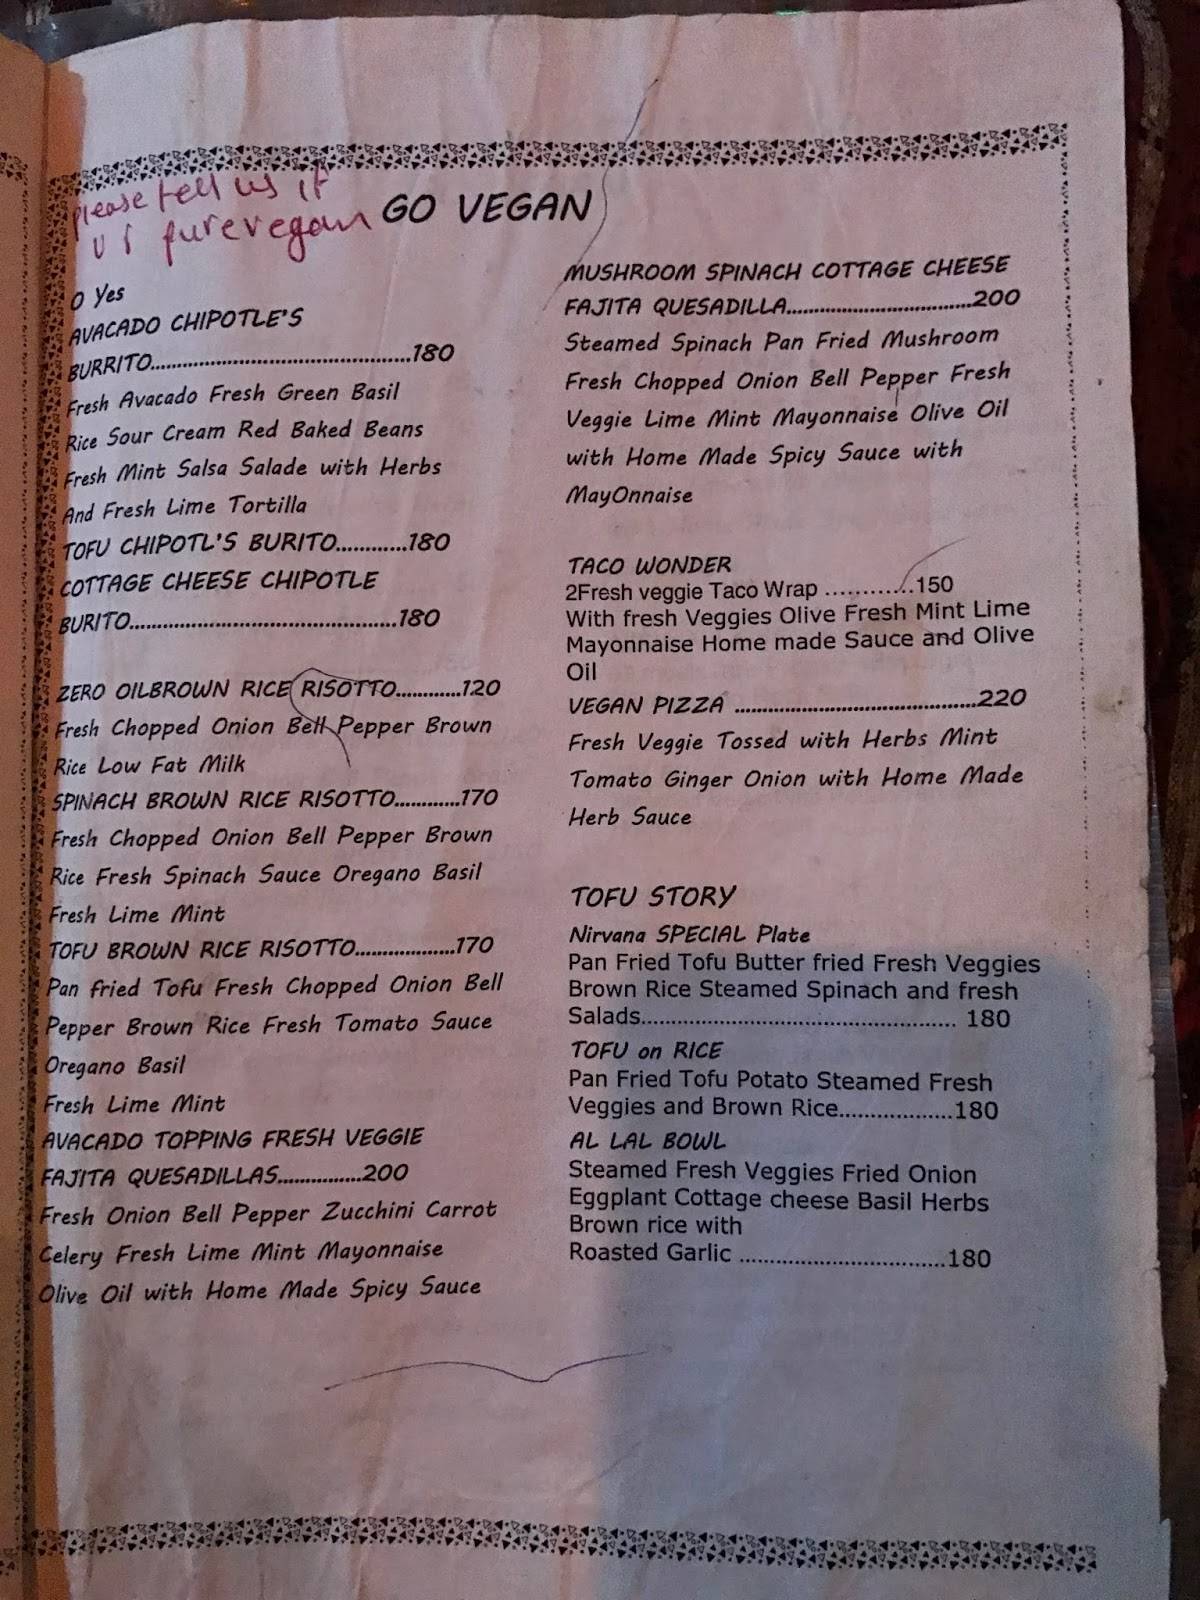 please tell us if
u r pure vegan
GO VEGAN
O Yes
AVACADO CHIPOTLE'S
BURRITO..........................................180
Fresh Avacado Fresh Green Basil
Rice Sour Cream Red Baked Beans
Fresh Mint Salsa Salade with Herbs
And Fresh Lime Tortilla
TOFU CHIPOTL'S BURITO............180
COTTAGE CHEESE CHIPOTLE
BURITO...........................................180
ZERO OILBROWN RICE RISOTTO............120
Fresh Chopped Onion Bell Pepper Brown
Rice Low Fat Milk
SPINACH BROWN RICE RISOTTO............170
Fresh Chopped Onion Bell Pepper Brown
Rice Fresh Spinach Sauce Oregano Basil
Fresh Lime Mint
TOFU BROWN RICE RISOTTO...................170
Pan fried Tofu Fresh Chopped Onion Bell
Pepper Brown Rice Fresh Tomato Sauce
Oregano Basil
Fresh Lime Mint
AVACADO TOPPING FRESH VEGGIE
FAJITA QUESADILLAS................200
Fresh Onion Bell Pepper Zucchini Carrot
Celery Fresh Lime Mint Mayonnaise
Olive Oil with Home Made Spicy Sauce
MUSHROOM SPINACH COTTAGE CHEESE
FAJITA QUESADILLA..............................200
Steamed Spinach Pan Fried Mushroom
Fresh Chopped Onion Bell Pepper Fresh
Veggie Lime Mint Mayonnaise Olive Oil
with Home Made Spicy Sauce with
MayOnnaise
TACO WONDER
2Fresh veggie Taco Wrap ............150
With fresh Veggies Olive Fresh Mint Lime
Mayonnaise Home made Sauce and Olive
Oil
VEGAN PIZZA .......................................220
Fresh Veggie Tossed with Herbs Mint
Tomato Ginger Onion with Home Made
Herb Sauce
TOFU STORY
Nirvana SPECIAL Plate
Pan Fried Tofu Butter fried Fresh Veggies
Brown Rice Steamed Spinach and fresh
Salads............................................... 180
TOFU on RICE
Pan Fried Tofu Potato Steamed Fresh
Veggies and Brown Rice.................180
AL LAL BOWL
Steamed Fresh Veggies Fried Onion
Eggplant Cottage cheese Basil Herbs
Brown rice with
Roasted Garlic ...............................180